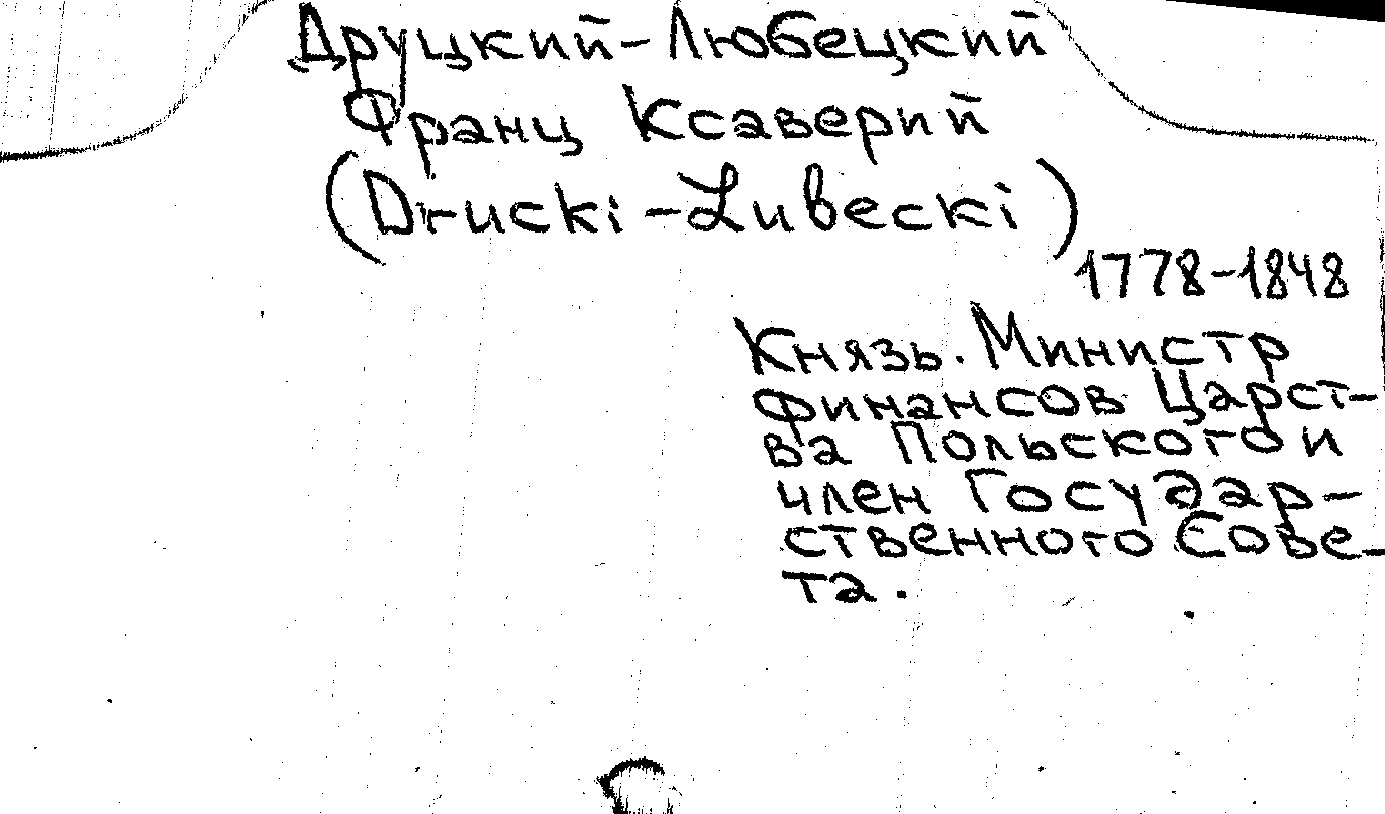 Друцкий-Любецкий
Франц Ксаверий
(Drucki-Lubecki)
1778-1848
Князь. Министр
финансов Царст-
ва Польского и
член Государ-
ственного Сове-
та.